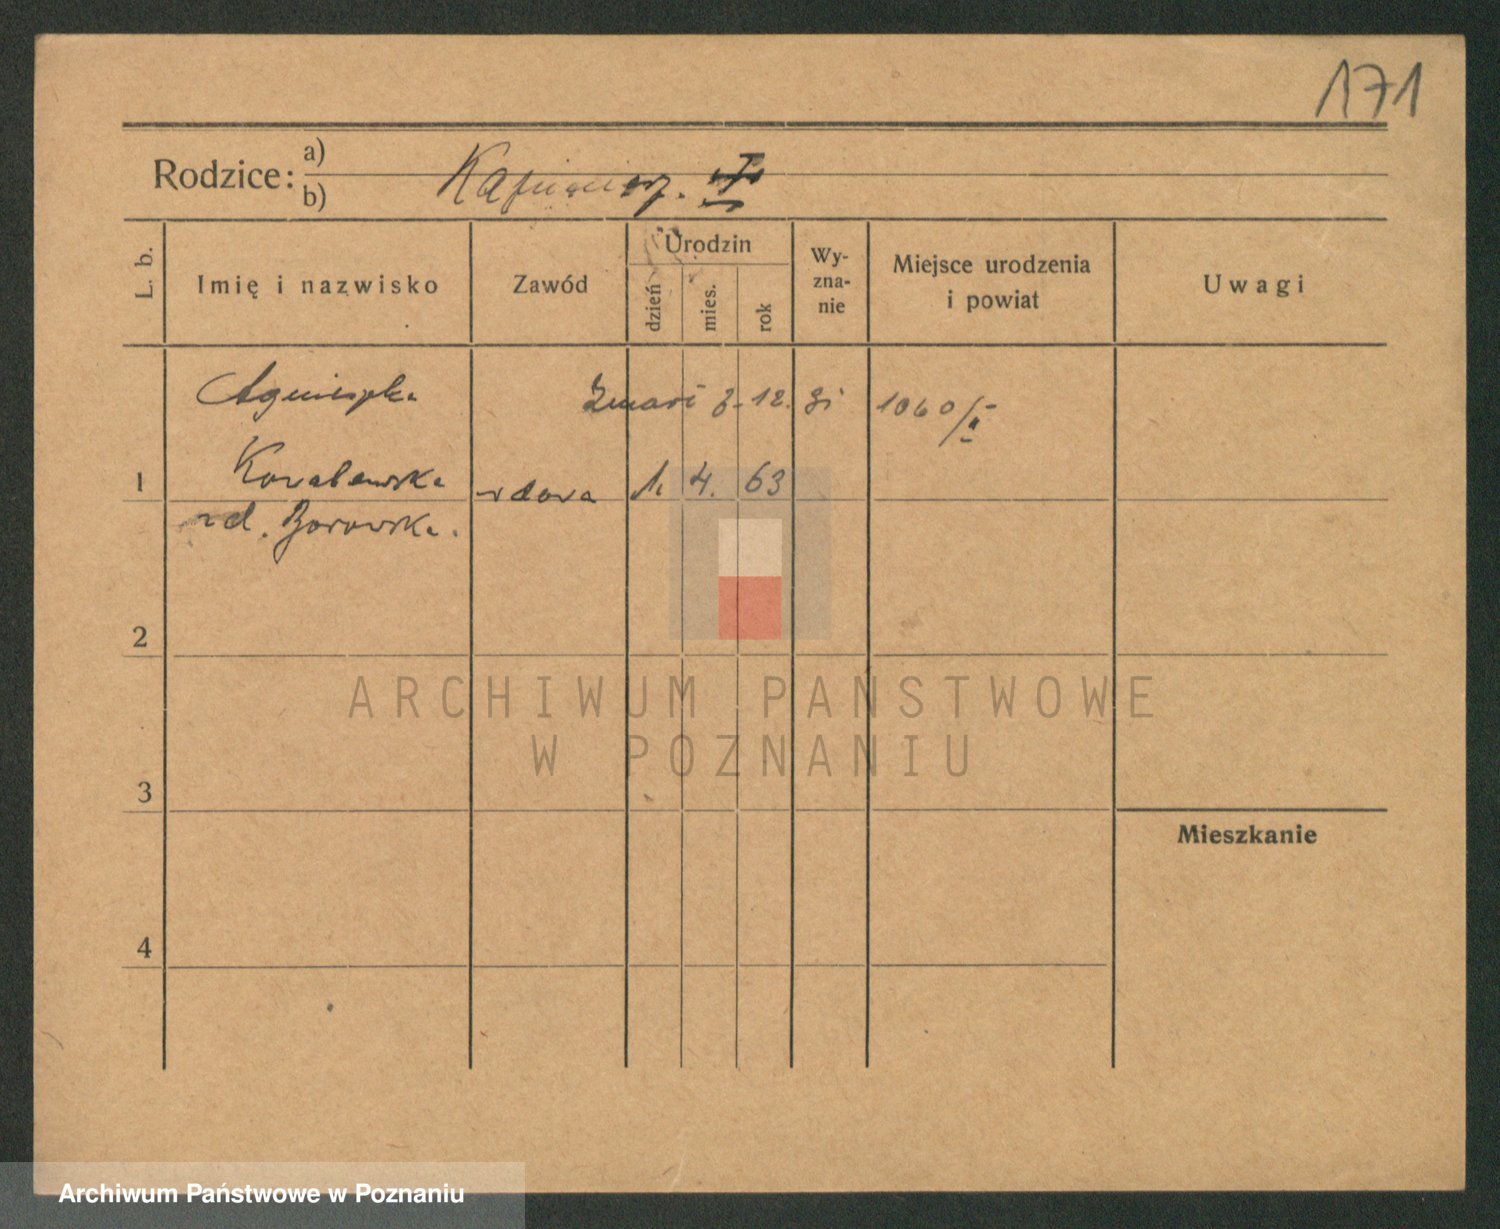 171
Rodzice: a)
b)
Kazimierz. I
L. b.
Imię i nazwisko
Zawód
Urodzin
dzień
mies.
rok
Wy-
zna-
nie
Miejsce urodzenia
i powiat
Uwagi
Agnieszka
12. 31 1060/II
1
Kowalewska wdowa 1. 4. 63
rd. Borowska.
2
3
4
Mieszkanie
ARCHIWUM PAŃSTWOWE
W POZNANIU
Archiwum Państwowe w Poznaniu